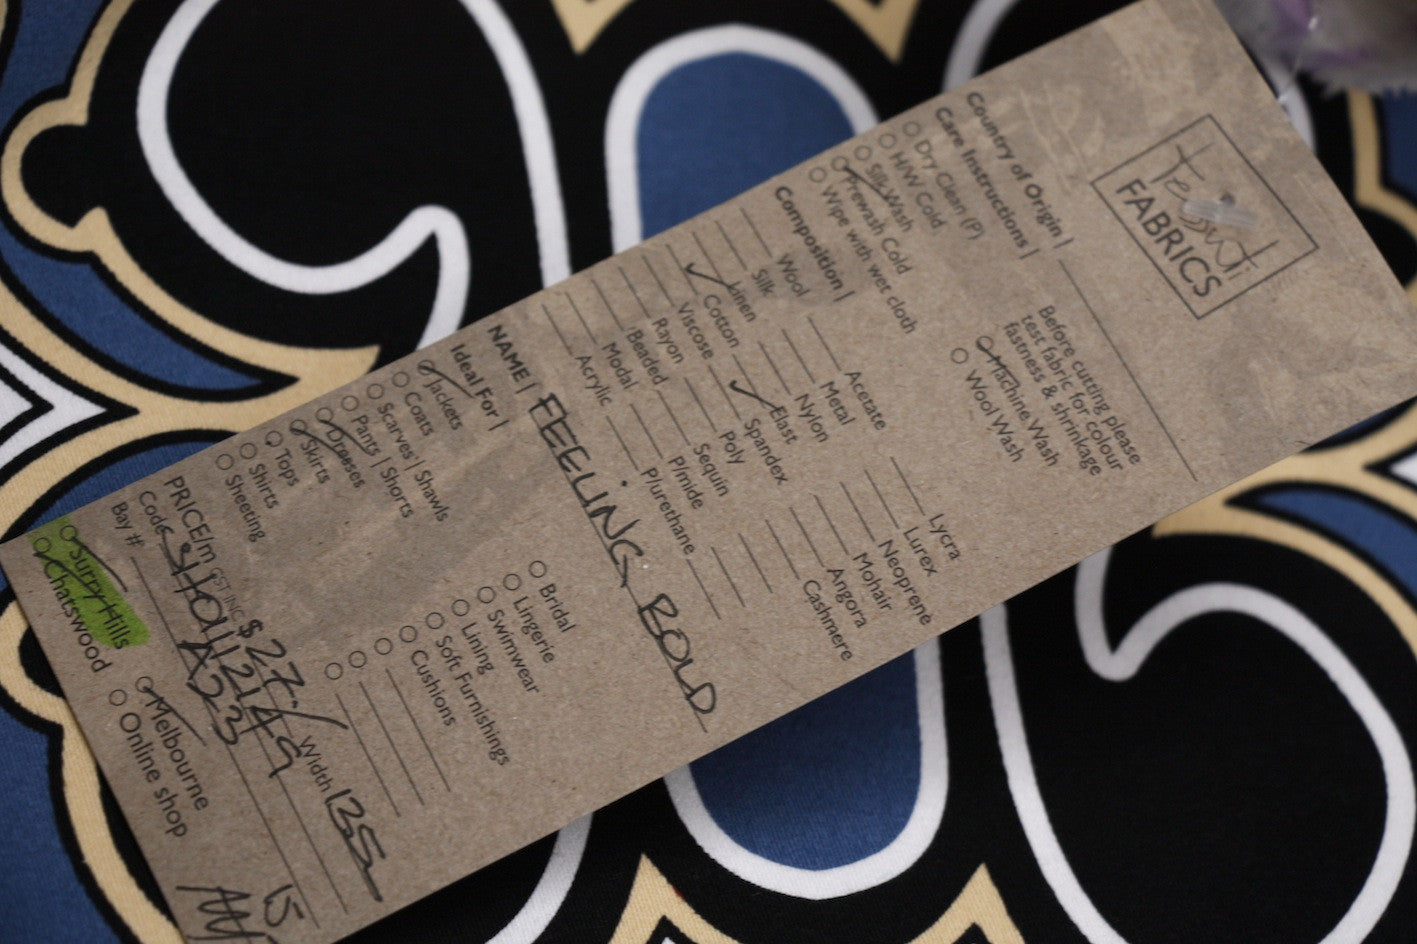 Tessuti
FABRICS
Country of Origin |
Care Instructions |
Dry Clean (P)
H/W Cold
Silk Wash
Prewash Cold
Wipe with wet cloth
Before cutting please
test fabric for colour
fastness & shrinkage
Machine Wash
Wool Wash
Composition |
Wool
Silk
Linen
Cotton
Viscose
Rayon
Beaded
Modal
Acrylic
Acetate
Metal
Nylon
Elast
Spandex
Poly
Sequin
P/mide
Plurethane
Lycra
Lurex
Neoprene
Mohair
Angora
Cashmere
NAME | FEELING BOLD
Ideal For |
Jackets
Coats
Scarves | Shawls
Pants | Shorts
Dresses
Skirts
Tops
Shirts
Sheeting
Bridal
Lingerie
Swimwear
Lining
Soft Furnishings
Cushions
PRICE/m GST INC $ 27.- Width 135
Code
Bay # A23
Surry Hills
Chatswood
Melbourne
Online shop
15